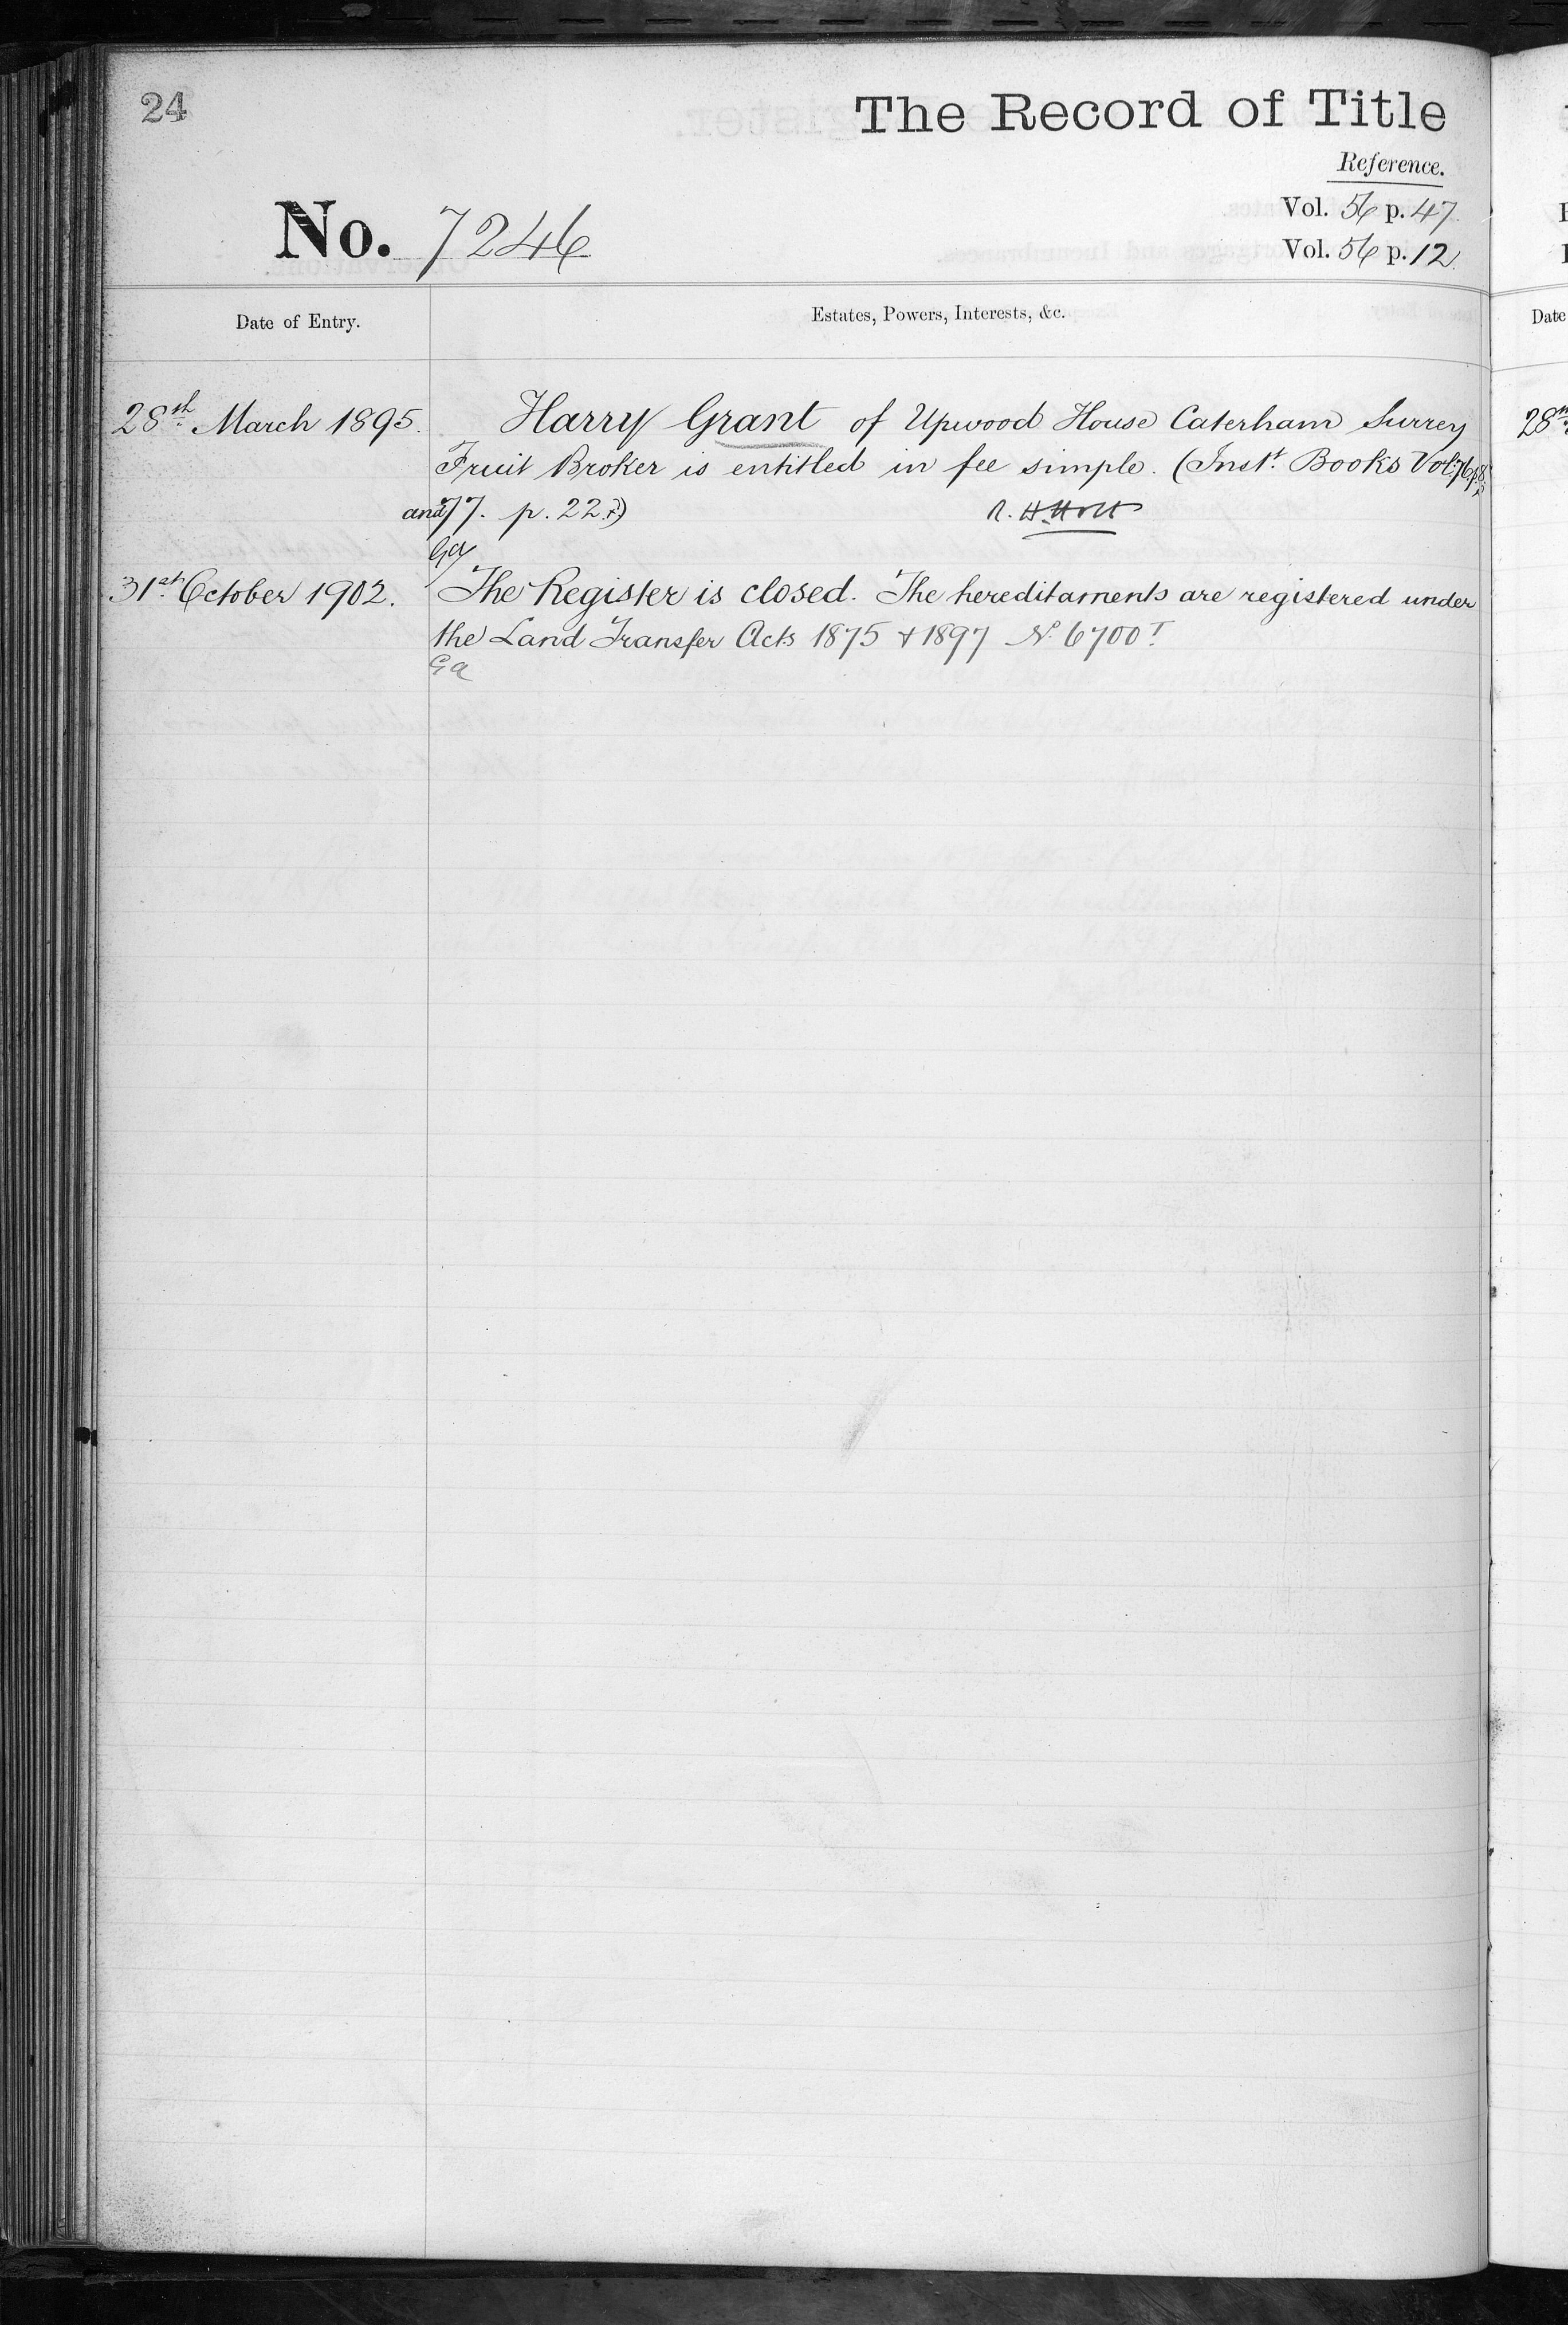 24
The Record of Title
Reference.
No. 7246
Vol. 56 p. 47.
Vol. 56 p. 12.
Date of Entry.
Estates, Powers, Interests, &c.
Date
28th March 1895.
Harry Grant of Upwood House Caterham Surrey
Fruit Broker is entitled in fee simple. (Inst. Books Vol: 76 p.
and 77. p. 22
Ga
31st October 1902.
The Register is closed. The hereditaments are registered under
the Land Transfer Acts 1875 & 1897 No. 6700 T
Ga
28th